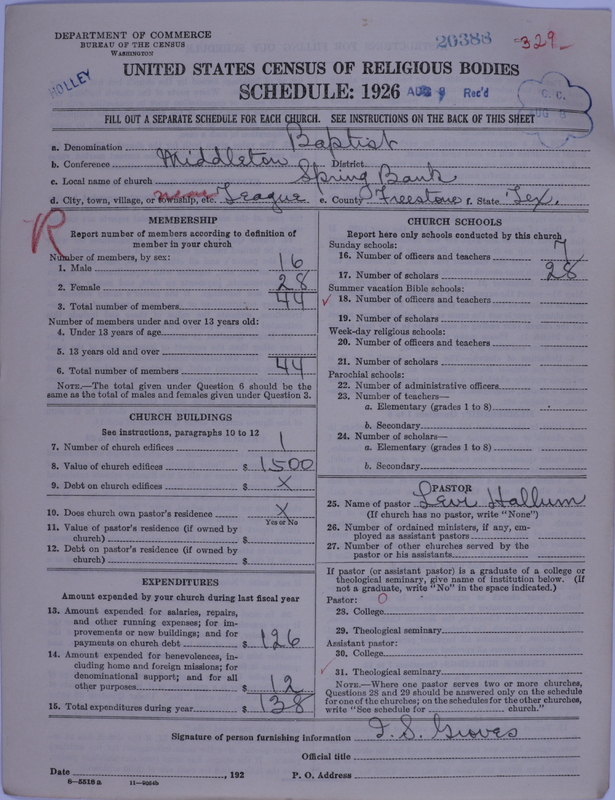 DEPARTMENT OF COMMERCE
BUREAU OF THE CENSUS
WASHINGTON
20388
329
HOLLEY
UNITED STATES CENSUS OF RELIGIOUS BODIES
SCHEDULE: 1926 AUG 9 Rec'd
C. C.
AUG 8
FILL OUT A SEPARATE SCHEDULE FOR EACH CHURCH. SEE INSTRUCTIONS ON THE BACK OF THIS SHEET
a. Denomination Baptist
b. Conference Middleton District
c. Local name of church Spring Bank
d. City, town, village, or township, etc. near Teague e. County Freestone f. State Tex.
R
MEMBERSHIP
Report number of members according to definition of
member in your church
Number of members, by sex:
1. Male 16
2. Female 28
3. Total number of members 44
Number of members under and over 13 years old:
4. Under 13 years of age
5. 13 years old and over
6. Total number of members 44
NOTE.—The total given under Question 6 should be
same as the total of males and females given under Question 3.
CHURCH BUILDINGS
See instructions, paragraphs 10 to 12
7. Number of church edifices 1
8. Value of church edifices $ 1500
9. Debt on church edifices $ X
10. Does church own pastor's residence X
Yes or No
11. Value of pastor's residence (if owned by
church) $
12. Debt on pastor's residence (if owned by
church) $
EXPENDITURES
Amount expended by your church during last fiscal year
13. Amount expended for salaries, repairs,
and other running expenses; for im-
provements or new buildings; and for
payments on church debt $ 126
14. Amount expended for benevolences, in-
cluding home and foreign missions; for
denominational support; and for all
other purposes $ 12
15. Total expenditures during year $ 138
CHURCH SCHOOLS
Report here only schools conducted by this church
Sunday schools:
16. Number of officers and teachers 7
17. Number of scholars 28
Summer vacation Bible schools:
18. Number of officers and teachers
19. Number of scholars
Week-day religious schools:
20. Number of officers and teachers
21. Number of scholars
Parochial schools:
22. Number of administrative officers
23. Number of teachers—
a. Elementary (grades 1 to 8)
b. Secondary
24. Number of scholars—
a. Elementary (grades 1 to 8)
b. Secondary
PASTOR
25. Name of pastor Levi Hallum
(If church has no pastor, write "None")
26. Number of ordained ministers, if any, em-
ployed as assistant pastors
27. Number of other churches served by the
pastor or his assistants
If pastor (or assistant pastor) is a graduate of a college or
theological seminary, give name of institution below. (If
not a graduate, write "No" in the space indicated.)
Pastor: O
28. College
29. Theological seminary
Assistant pastor:
30. College
31. Theological seminary
NOTE.—Where one pastor serves two or more churches,
Questions 28 and 29 should be answered only on the schedule
for one of the churches; on the schedules for the other churches,
write "See schedule for church."
Signature of person furnishing information J. S. Groves
Official title
Date , 192 P. O. Address
8—5518 a